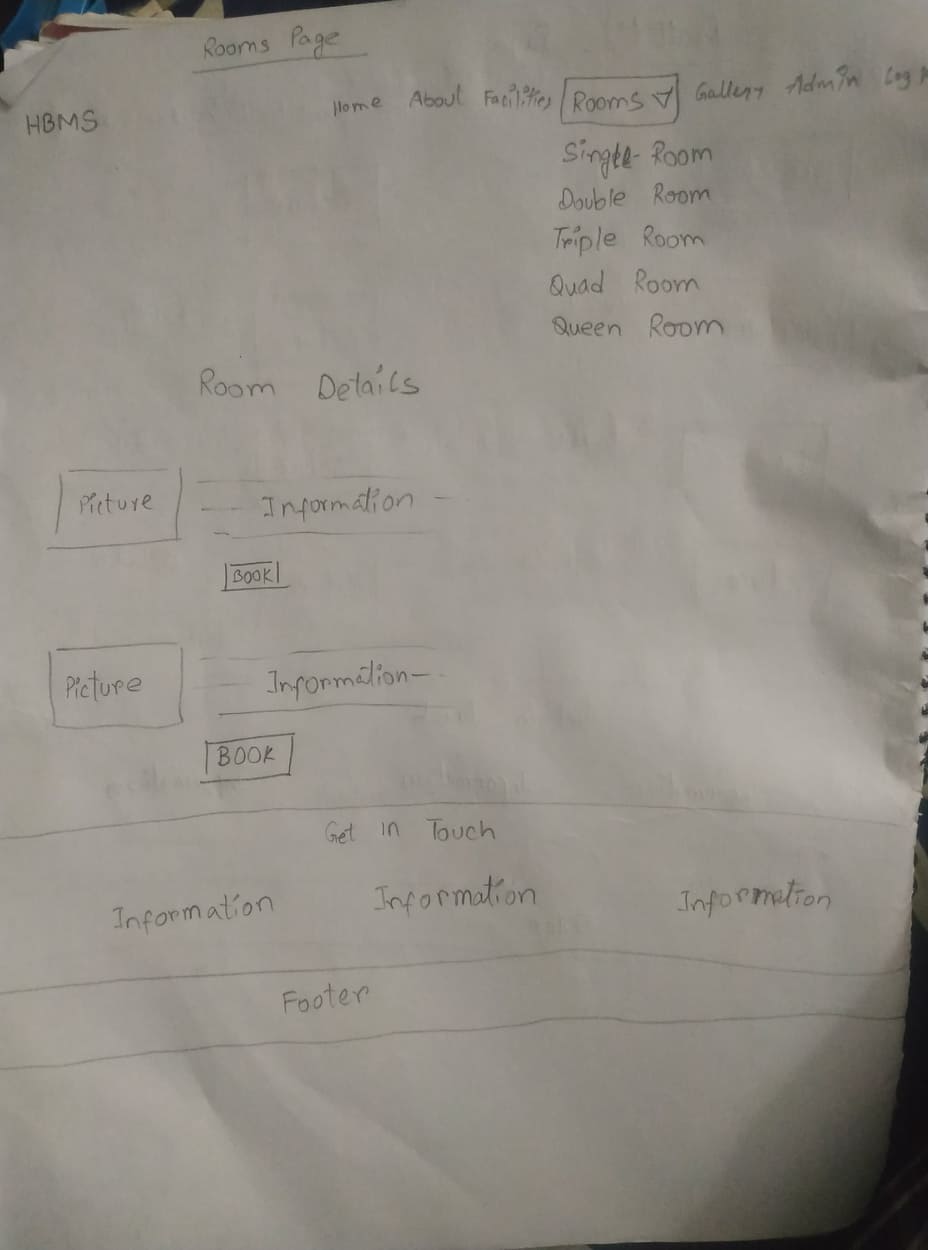 Rooms Page
HBMS Home About Facilities Rooms Gallery Admin Log
Single Room
Double Room
Triple Room
Quad Room
Queen Room
Room Details
Picture Information
BOOK
Picture Information
BOOK
Get in Touch
Information Information Information
Footer